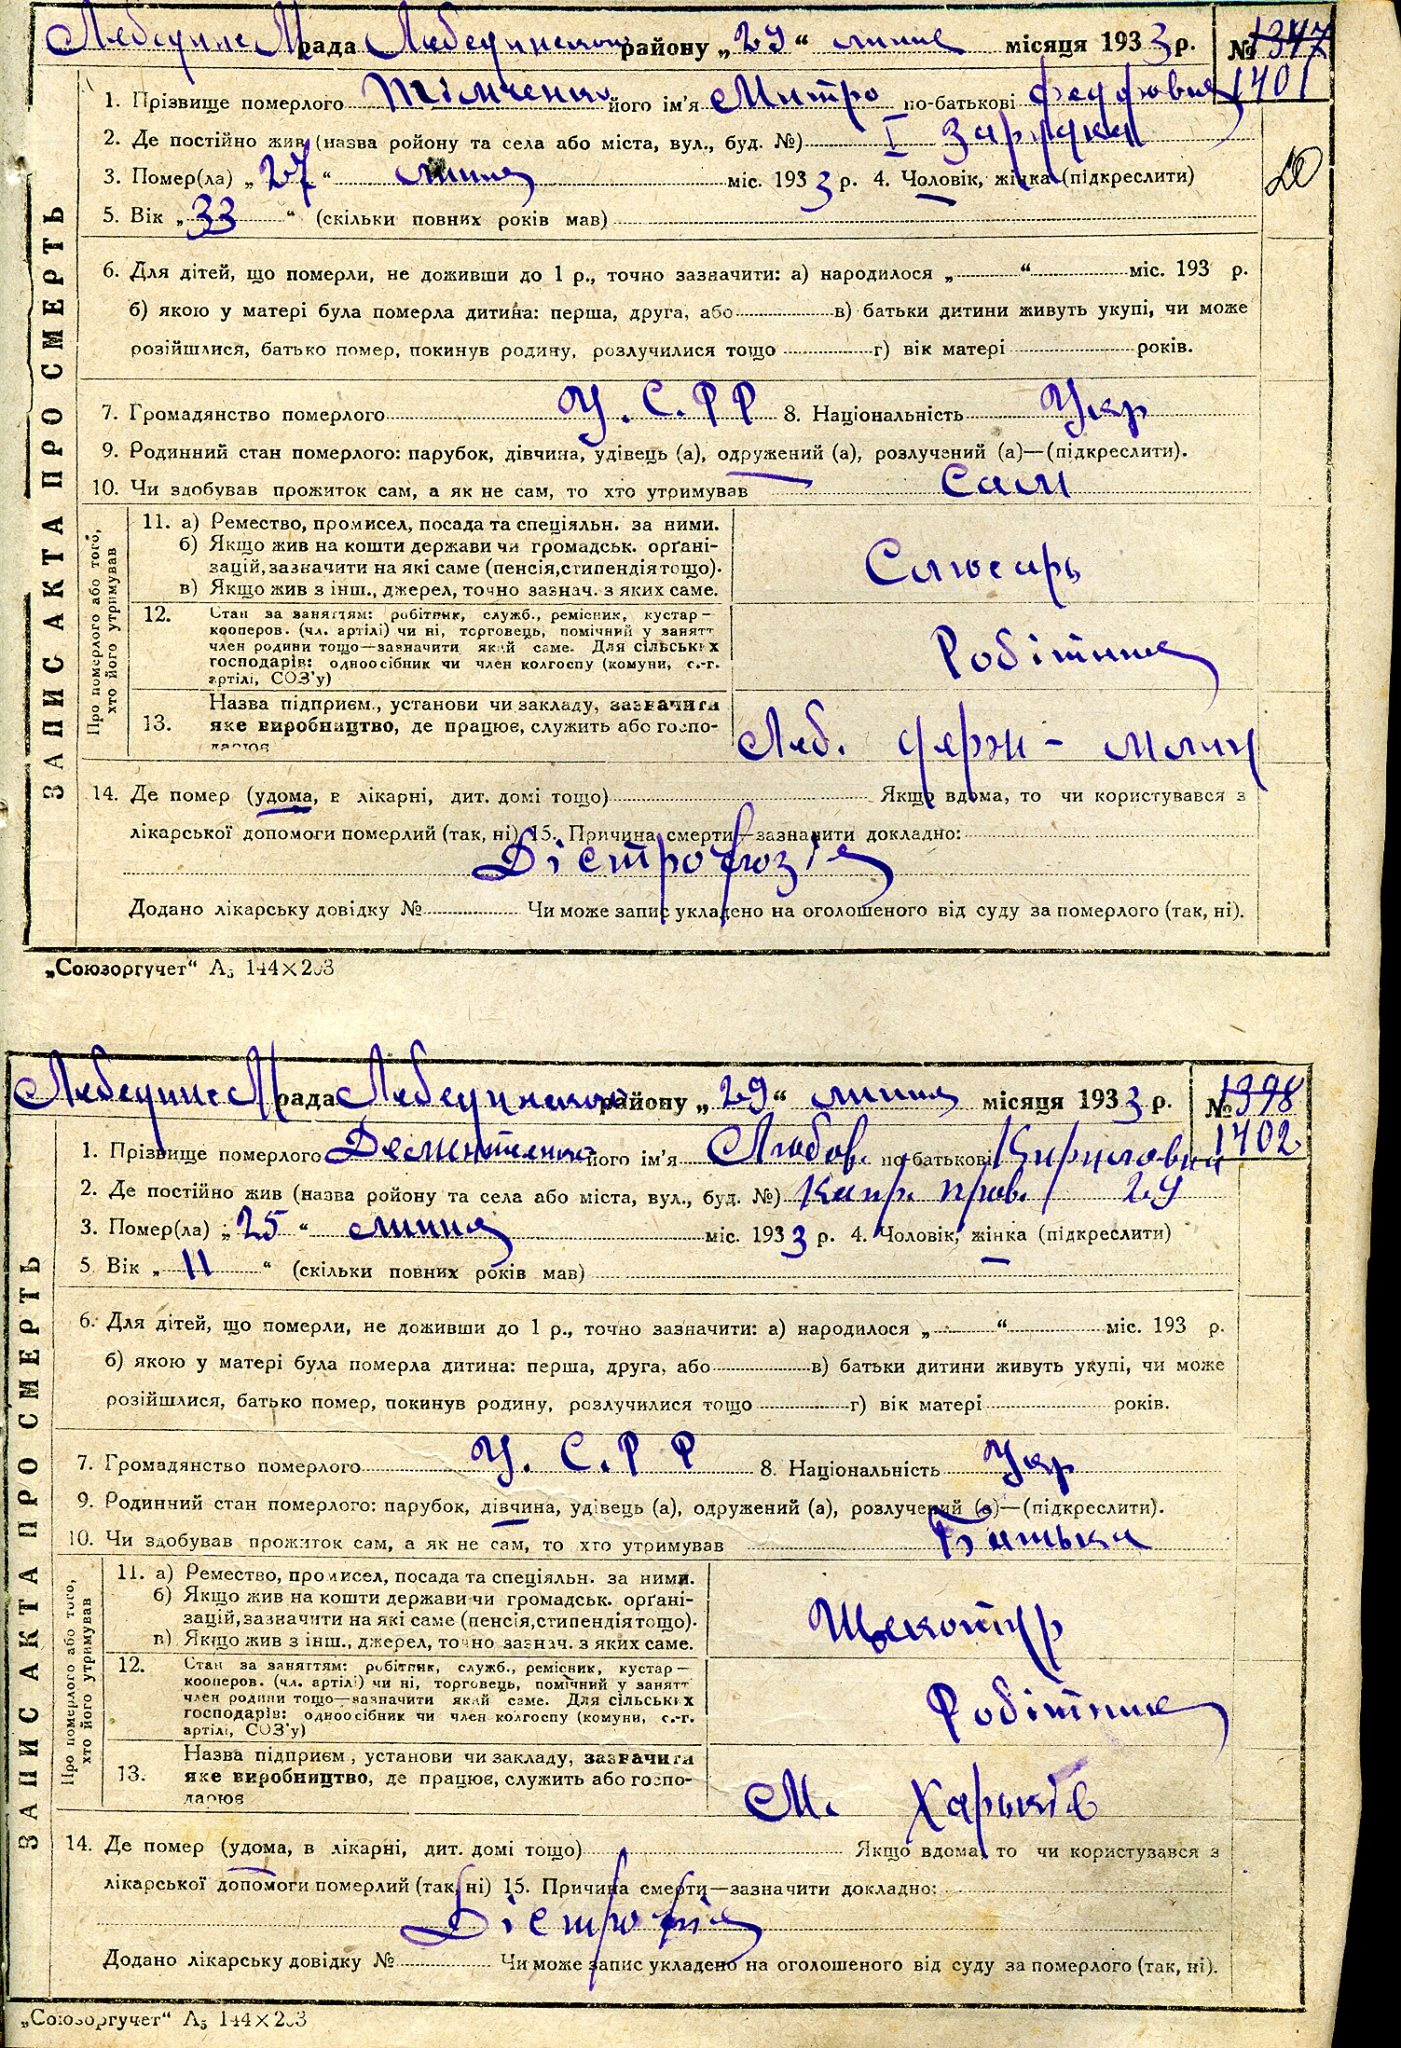 Лебединс М рада Лебединського району „29“ липня місяця 1933 р. № 1347
1401
1. Прізвище померлого Тімченко його ім'я Митро по-батькові Федорович
2. Де постійно жив (назва ройону та села або міста, вул., буд. №) I Зарудка
3. Помер(ла) „27“ липня міс. 1933 р. 4. Чоловік, жінка (підкреслити)
20
5. Вік „33“ (скільки повних років мав)
6. Для дітей, що померли, не доживши до 1 р., точно зазначити: а) народилося „ “ міс. 193 р.
б) якою у матері була померла дитина: перша, друга, або в) батьки дитини живуть укупі, чи може
розійшлися, батько помер, покинув родину, розлучилися тощо г) вік матері років.
7. Громадянство померлого У.С.РР 8. Національність Укр
9. Родинний стан померлого: парубок, дівчина, удівець (а), одружений (а), розлучений (а)—(підкреслити).
10. Чи здобував прожиток сам, а як не сам, то хто утримував Сам
ЗАПИС АКТА ПРО СМЕРТЬ
Про померлого або того,
хто його утримував
11. а) Ремество, промисел, посада та спеціяльн. за ними.
б) Якщо жив на кошти держави чи громадськ. орґані-
зацій, зазначити на які саме (пенсія, стипендія тощо).
в) Якщо жив з інш., джерел, точно зазнач. з яких саме.
Слюсарь
12. Стан за заняттям: робітник, служб., ремісник, кустар—
кооперов. (чл. артілі) чи ні, торговець, помічний у занятт
член родини тощо—зазначити який саме. Для сільських
господарів: одноосібник чи член колгоспу (комуни, с.-г.
артілі, СОЗ'у)
Робітник
13. Назва підприєм., установи чи закладу, зазначити
яке виробництво, де працює, служить або госпо-
дарює
Леб. Держ-млин
14. Де помер (удома, в лікарні, дит. домі тощо) Якщо вдома, то чи користувався з
лікарської допомоги померлий (так, ні) 15. Причина смерти—зазначити докладно:
Дістрофюзія
Додано лікарську довідку № Чи може запис укладено на оголошеного від суду за померлого (так, ні).
„Союзоргучет“ А₅ 144×203
Лебединс М рада Лебединського району „29“ липня місяця 1933 р. № 1398
1402
1. Прізвище померлого його ім'я Любов по-батькові Кириловна
2. Де постійно жив (назва ройону та села або міста, вул., буд. №) 29
3. Помер(ла) „25“ липня міс. 1933 р. 4. Чоловік, жінка (підкреслити)
5. Вік „11“ (скільки повних років мав)
6. Для дітей, що померли, не доживши до 1 р., точно зазначити: а) народилося „ “ міс. 193 р.
б) якою у матері була померла дитина: перша, друга, або в) батьки дитини живуть укупі, чи може
розійшлися, батько помер, покинув родину, розлучилися тощо г) вік матері років.
7. Громадянство померлого У.С.РР 8. Національність Укр
9. Родинний стан померлого: парубок, дівчина, удівець (а), одружений (а), розлучений (а)—(підкреслити).
10. Чи здобував прожиток сам, а як не сам, то хто утримував Батько
ЗАПИС АКТА ПРО СМЕРТЬ
Про померлого або того,
хто його утримував
11. а) Ремество, промисел, посада та спеціяльн. за ними.
б) Якщо жив на кошти держави чи громадськ. орґані-
зацій, зазначити на які саме (пенсія, стипендія тощо).
в) Якщо жив з інш., джерел, точно зазнач. з яких саме.
Щекотур
12. Стан за заняттям: робітник, служб., ремісник, кустар—
кооперов. (чл. артілі) чи ні, торговець, помічний у занятт
член родини тощо—зазначити який саме. Для сільських
господарів: одноосібник чи член колгоспу (комуни, с.-г.
артілі, СОЗ'у)
Робітник
13. Назва підприєм., установи чи закладу, зазначити
яке виробництво, де працює, служить або госпо-
дарює
М. Харьків
14. Де помер (удома, в лікарні, дит. домі тощо) Якщо вдома, то чи користувався з
лікарської допомоги померлий (так, ні) 15. Причина смерти—зазначити докладно:
Дістрофія
Додано лікарську довідку № Чи може запис укладено на оголошеного від суду за померлого (так, ні).
„Союзоргучет“ А₅ 144×203